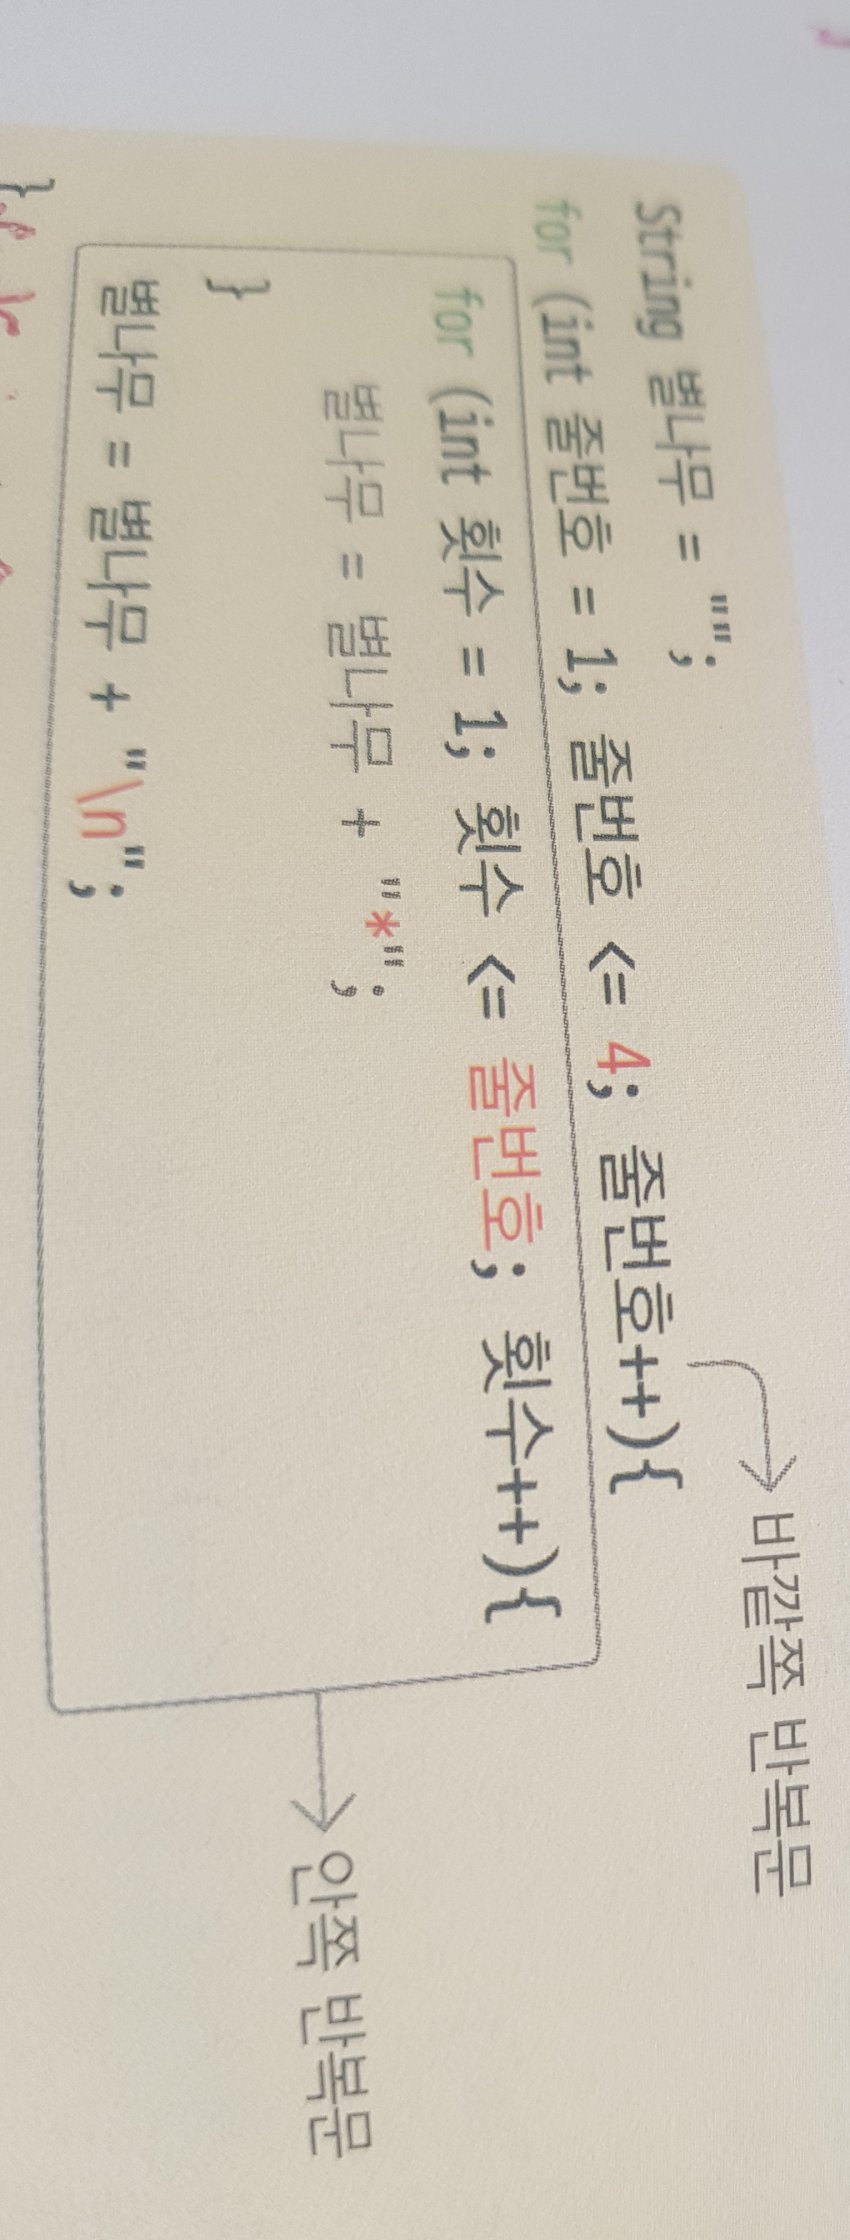 String 별나무 = "";
for (int 줄번호 = 1; 줄번호 <= 4; 줄번호++){
바깥쪽 반복문
for (int 횟수 = 1; 횟수 <= 줄번호; 횟수++){
별나무 = 별나무 + "*";
}
안쪽 반복문
별나무 = 별나무 + "\n";
}